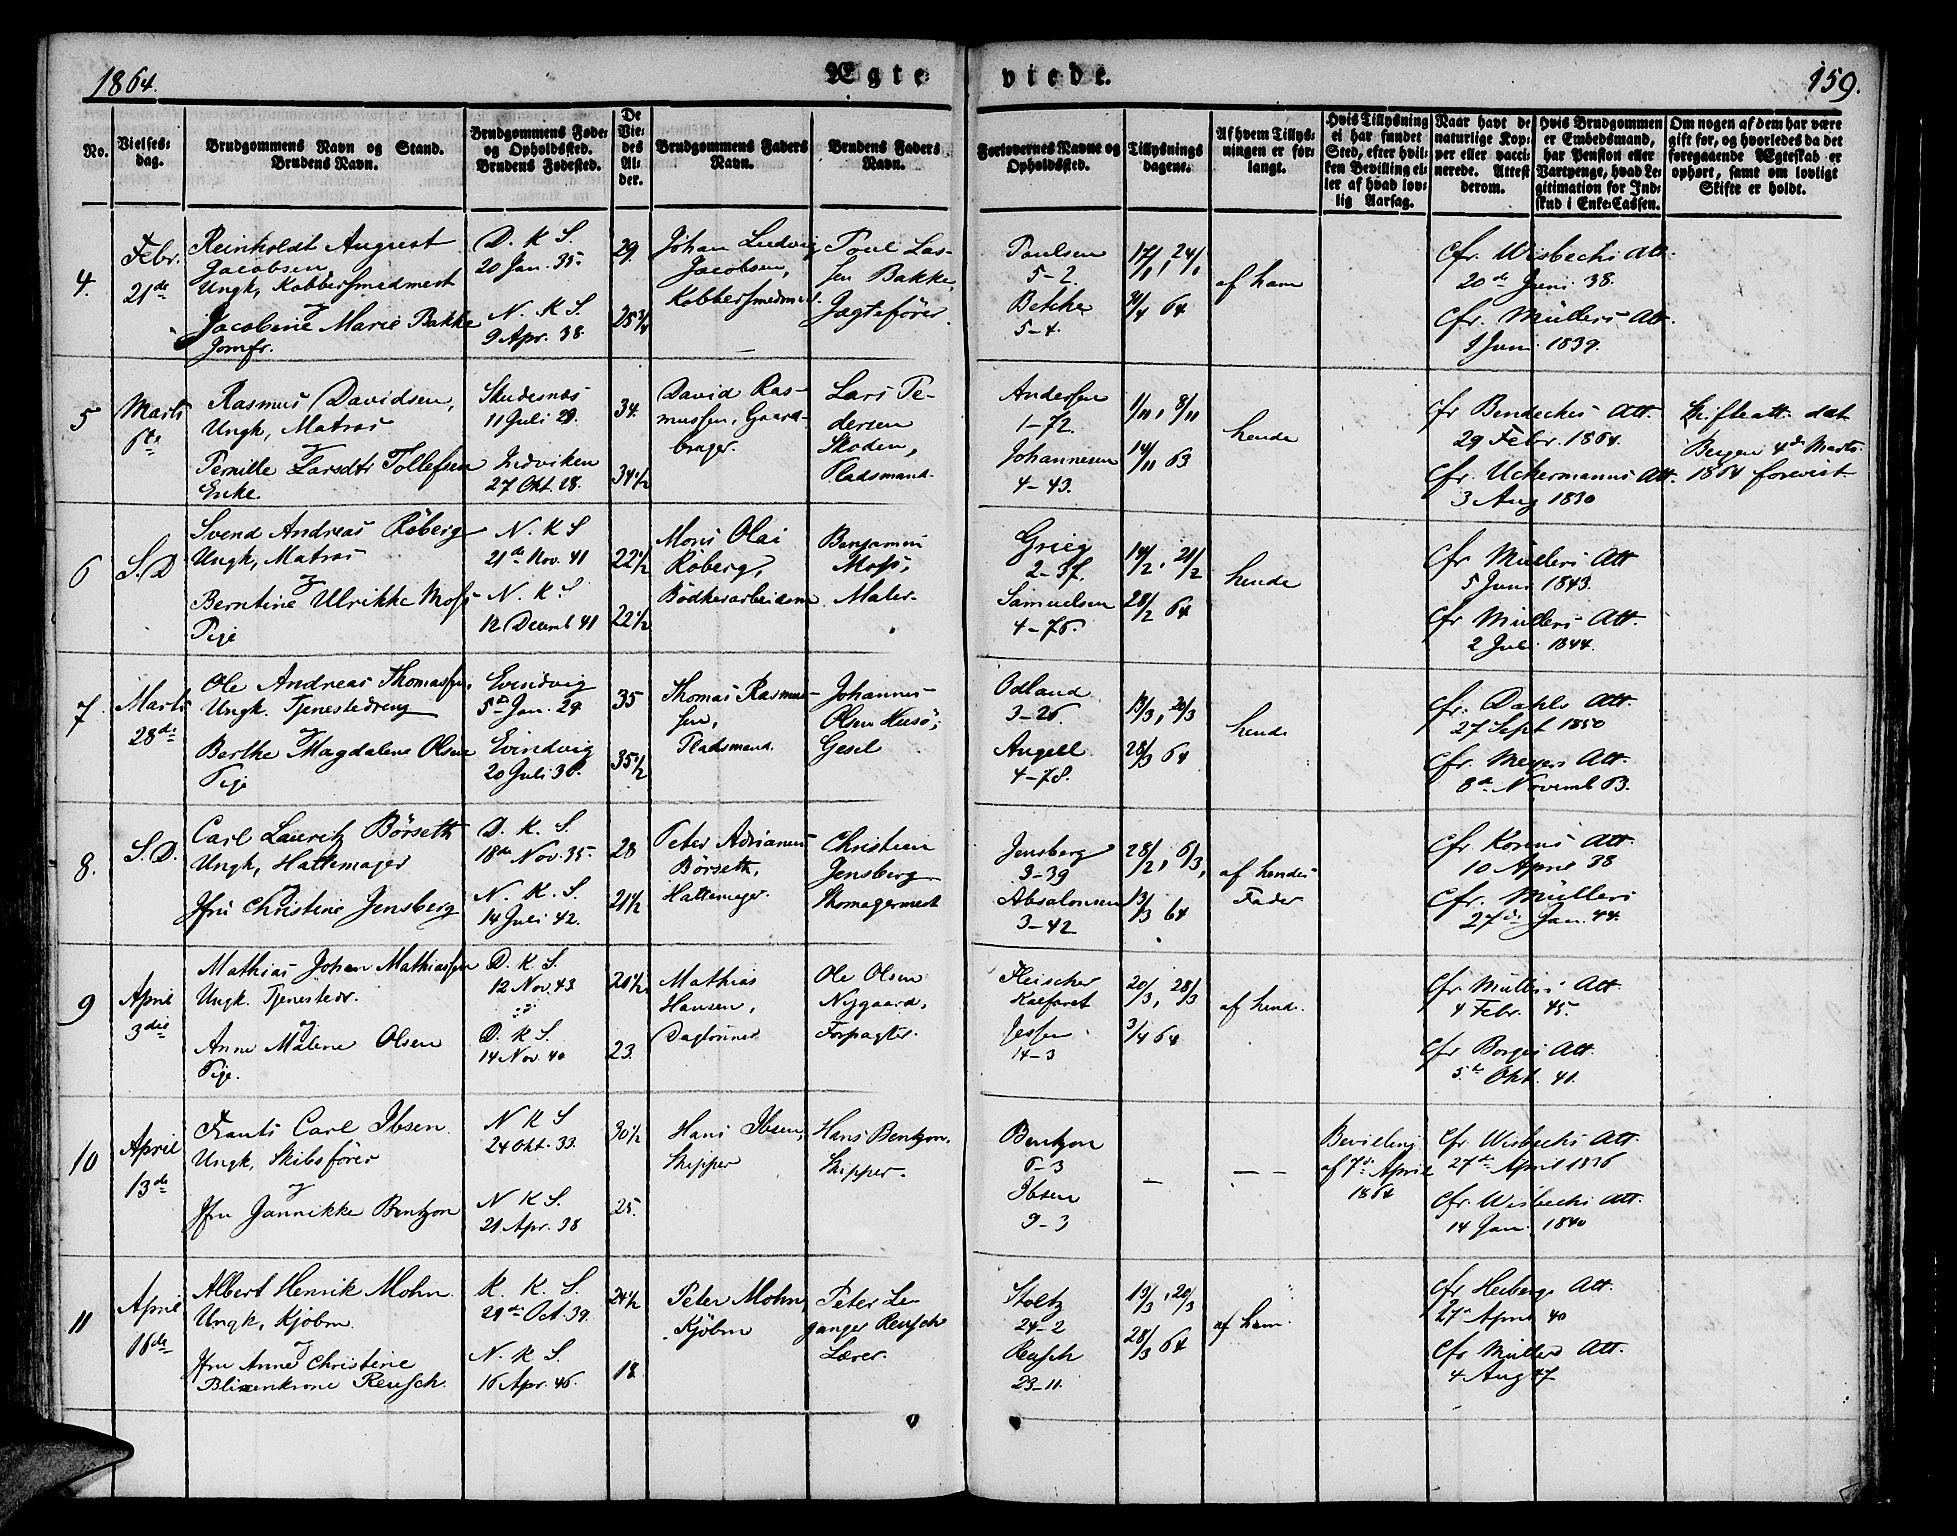 1864.
Ægte
viede.
159.
No.
Vielses-
dag.
Brudgommens Navn og Stand.
Brudens Navn.
Brudgommens Føde-
og Opholdssted.
Brudens Fødested.
De
Vie-
des
Al-
der.
Brudgommens Faders
Navn.
Brudens Faders
Navn.
Forlovernes Navne og
Opholdssted.
Tillysnings
dagene.
Af hvem Tillys-
ningen er for-
langt.
Hvis Tillysning
ei har fundet
Sted, efter hvil-
ken Bevilling el-
ler af hvad lov-
lig Aarsag.
Naar havt de
naturlige Kop-
per eller vacci-
nerede. Attest
derom.
Hvis Brudgommen
er Embedsmand,
har Pension eller
Vartpenge, hvad Le-
gitimation for Ind-
skud i Enke-Cassen.
Om nogen af dem har være
gift før, og hvorledes da det
foregaaende Ægteskab er
ophørt, samt om lovligt
Skifte er holdt.
4.
Febr.
21de
Reinholdt August
Jacobsen
Ungk, Kobbersmedmest
og
Jacobine Marie Bakke
Jomfr.
D. K. S.
20 Jan. 35.
N. K. S.
9 Apr. 38
29.
25 3/4
Johan Ludvig
Jacobsen,
Kobbersmedmest.
Poul Las-
sen Bakke,
Jægtefører.
Paulsen
5-2.
Betcke
5-4.
17/1, 24/1
64
af ham
Cfr. Wisbechs Att.
20de Juni 38.
Cfr. Müllers Att.
1 Juni 1839.
5
Marts
6te
Rasmus Davidsen,
Ungk, Matros
og
Pernille Larsdtr Tollefsen
Enke.
Skudesnæs
11 Juli 29.
Indviken
27 Okt. 28.
34.
34 1/2
David Ras-
mussen, Gaard-
bruger.
Lars Pe-
dersen
Skoden,
Pladsmand.
Andersen
1-72.
Johannesen
4-43.
1/11, 8/11
63
hende
Cfr Bendechés Att.
29 Febr. 1864.
Cfr. Uckermanns Att.
3 Aug 1830
Skifteatt. dat
Bergen 4de Marts
1864 forevist.
6
S.D
Svend Andreas Röberg
Ungk, Matros
og
Berntine Ulrikke Moss
Pige
N. K S
21de Nov. 41
N. K. S
12 Decemb 41
22 1/2
22 1/2
Mons Olai
Röberg,
Bödkerarbeidsm.
Benjamin
Moss,
Maler.
Grieg
2-37.
Samuelsen
4-76.
14/2, 21/2
28/2 64
hende
Cfr Müllers Att
5 Juni 1843.
Cfr Müllers Att.
2 Juli 1844.
7.
Marts
28de
Ole Andreas Thomassen,
Ungk. Tjenestedreng
og
Berthe Magdalene Olsen
Pige
Evindvig
5te Jan. 29
Evindvig
20 Juli 30.
35
35 1/2
Thomas Rasmus-
sen,
Pladsmand.
Johannes
Olsen Husö,
Gesel
Odland
3-26.
Angell
4-78.
13/3, 20/3
28/3 64
hende
Cfr. Dahls Att.
27 Sept 1850
Cfr. Meyers Att.
8de Novemb 63.
8.
S.D.
Carl Lauritz Börseth
Ungk, Hattemager
og
Jfru Christine Jensberg
D. K. S.
18de Nov. 35.
N. K. S.
14 Juli 42.
28
21 1/2
Peter Adrianus
Börseth,
Hattemager.
Christian
Jensberg
Skomagermest
Jensberg
3-39
Absalonsen
3-42
28/2, 6/3,
13/3 64
af hendes
Fader
Cfr. Korens Att.
10 April 38
Cfr. Müllers
27de Jan. 44.
9
April
3die
Mathias Johan Mathiassen
Ungk. Tjenestedr.
og
Anne Malene Olsen
Pige.
D. K. S.
12 Nov. 43
D. K S.
14 Nov. 40
20 1/2
23.
Mathias
Hansen,
Daglönner
Ole Olsen
Nygaard,
Forpagter.
Fleischer
Kalfaret
Jessen
14-3
20/3, 28/3
3/4 64
af hend.
Cfr Müllers Att.
4 Febr. 45.
Cfr Borges Att.
5te Okt. 41.
10
April
13de
Frants Carl Ibsen
Ungk, Skibsförer
og
Jfru Jannikke Bentzon
N K S
24 Okt. 33.
N K S.
21 Apr. 38
30 1/2
25.
Hans Ibsen,
Skipper
Hans Bentzon,
Skipper.
Bentzon
6-3
Ibsen
9-3
—
— —
Bevilling
af 7de April
1864
Cfr Wisbechs Att.
27de April 1836
Cfr. Wisbechs Att.
14 Jan. 1840
11
April
16de
Albert Henrik Mohn
Ungk, Kjöbm.
og
Jfru Anne Christine
Blixenkrone Reusch.
K. K. S.
29de Oct. 39.
N. K S.
16 Apr. 46.
24 1/2
18.
Peter Mohn
Kjöbm
Peter Le-
ganger Reusch
Lærer.
Stoltz
24-2
Reusch
23-11.
13/3, 20/3
28/3 64
af ham.
Cfr Heibergs Att.
27 April 40
Cfr Müllers Att.
4 Aug 47